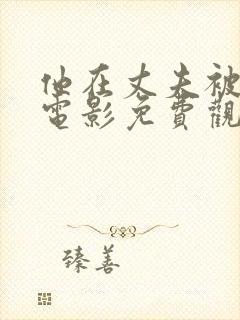 他在丈夫被
電影免費觀
臻善